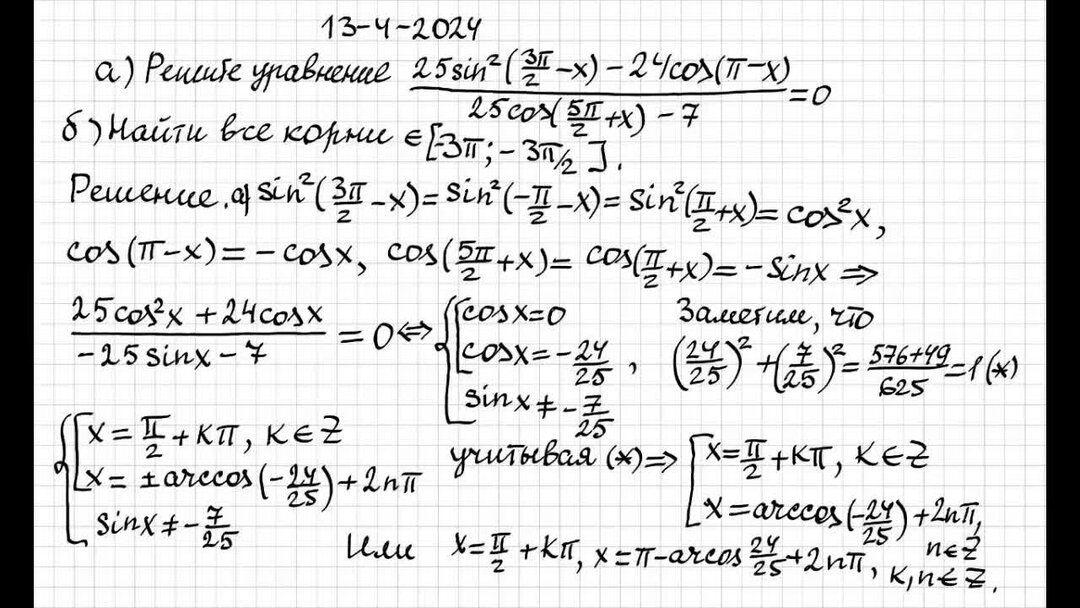 13-4-2024
а) Решите уравнение (25sin²(3π/2 -x) - 24cos(π-x))/(25cos(5π/2 +x) - 7) = 0
б) Найти все корни ∈ [-3π; -3π/2].
Решение. а) sin²(3π/2 -x) = sin²(-π/2 -x) = sin²(π/2 +x) = cos²x,
cos(π-x) = -cosx, cos(5π/2 +x) = cos(π/2 +x) = -sinx ⇒
(25cos²x + 24cosx)/(-25sinx - 7) = 0 ⇔ { [ cosx=0
cosx = -24/25 ,
sinx ≠ -7/25
Заметим, что
(24/25)² + (7/25)² = (576+49)/625 = 1 (*)
{ [ x = π/2 + кπ, к∈Z
x = ±arccos(-24/25) + 2nπ
sinx ≠ -7/25
учитывая (*) ⇒ [ x = π/2 + кπ, к∈Z
x = arccos(-24/25) + 2nπ,
n∈Z
Или x = π/2 + кπ, x = π - arcos 24/25 + 2nπ, к,n∈Z.